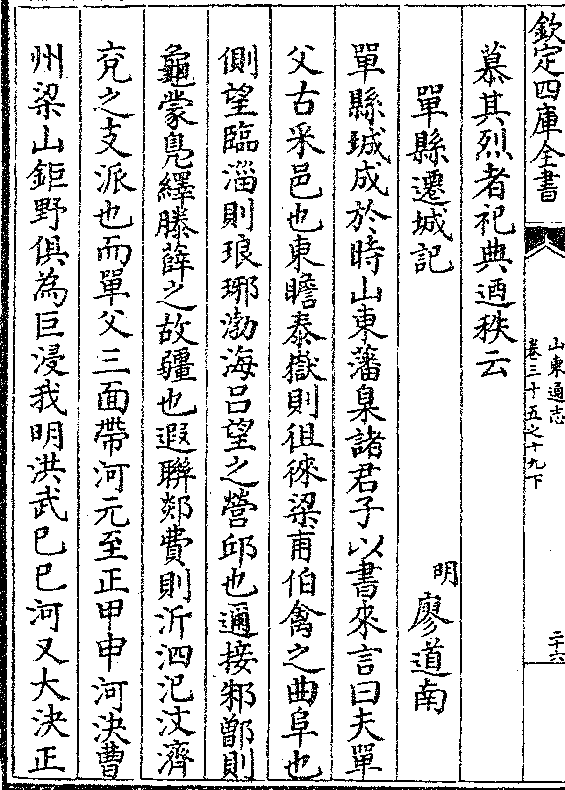 欽定四庫全書
山東通志
卷三十五之十九下
二十六
慕其烈者祀典迺秩云
單縣遷城記
明
廖道南
單縣城成於時山東藩臬諸君子以書來言曰夫單
父古采邑也東瞻泰嶽則徂徠梁甫伯禽之曲阜也
側望臨淄則琅琊渤海吕望之營邱也邇接邾鄫則
龜蒙鳧繹滕薛之故疆也遐聯郯費則沂泗汜汶濟
兖之支派也而單父三面帶河元至正甲申河決曹
州梁山鉅野俱為巨浸我明洪武己巳河又大決正